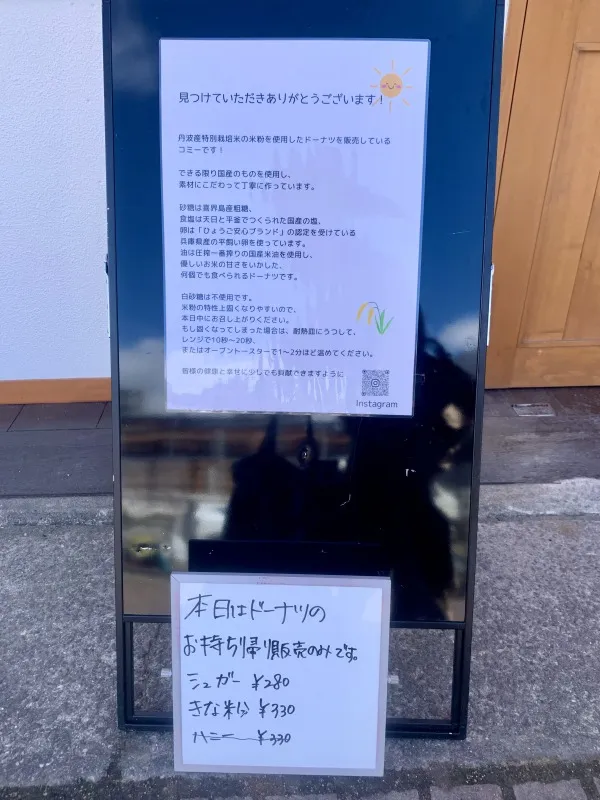 見つけていただきありがとうございます！
丹波産特別栽培米の米粉を使用したドーナツを販売している
コミーです！
できる限り国産のものを使用し、
素材にこだわって丁寧に作っています。
砂糖は喜界島産粗糖、
食塩は天日と平釜でつくられた国産の塩、
卵は「ひょうご安心ブランド」の認定を受けている
兵庫県産の平飼い卵を使っています。
油は圧搾一番搾りの国産米油を使用し、
優しいお米の甘さをいかした、
何個でも食べられるドーナツです。
白砂糖は不使用です。
米粉の特性上固くなりやすいので、
本日中にお召し上がりください。
もし固くなってしまった場合は、耐熱皿にうつして、
レンジで10秒〜20秒、
またはオーブントースターで1〜2分ほど温めてください。
皆様の健康と幸せに少しでも貢献できますように
Instagram
本日はドーナツの
お持ち帰り販売のみです。
シュガー ¥280
きな粉 ¥330
ハニー ¥330